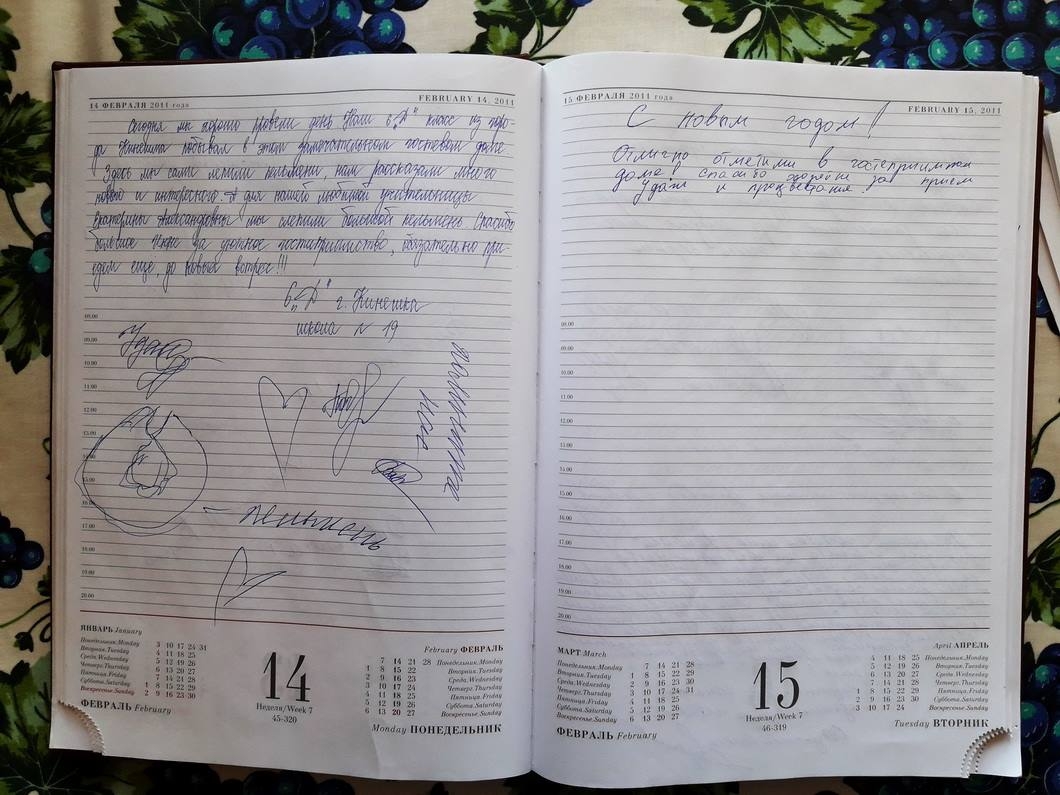 14 ФЕВРАЛЯ 2011 года
FEBRUARY 14, 2011
Сегодня мы хорошо провели день. Наш 6 „Д" класс из горо-
да Кинешма побывал в этом замечательном гостевом доме.
Здесь мы сами лепили пельмени, нам рассказали много
нового и интересного. А для нашей любимой учительницы
Екатерины Александровны мы слепили большой пельмень. Спасибо
большое за уютное гостеприимство, обязательно при-
едем ещё, до новых встреч!!!
6 „Д" г. Кинешма
школа № 19
08.00
09.00
10.00
11.00
12.00
13.00
14.00
15.00
16.00
17.00
18.00
19.00
20.00
– пельмень
ЯНВАРЬ January
Понедельник.Monday 3 10 17 24 31
Вторник.Tuesday 4 11 18 25
Среда.Wednesday 5 12 19 26
Четверг.Thursday 6 13 20 27
Пятница.Friday 7 14 21 28
Суббота.Saturday 1 8 15 22 29
Воскресенье.Sunday 2 9 16 23 30
ФЕВРАЛЬ February
14
Неделя/Week 7
45-320
February ФЕВРАЛЬ
7 14 21 28 Понедельник.Monday
1 8 15 22 Вторник.Tuesday
2 9 16 23 Среда.Wednesday
3 10 17 24 Четверг.Thursday
4 11 18 25 Пятница.Friday
5 12 19 26 Суббота.Saturday
6 13 20 27 Воскресенье.Sunday
Monday ПОНЕДЕЛЬНИК
15 ФЕВРАЛЯ 2011 года
FEBRUARY 15, 2011
С новым годом!
Отлично отметили в гостеприимном
доме! Спасибо за прием
Удачи и процветания
08.00
09.00
10.00
11.00
12.00
13.00
14.00
15.00
16.00
17.00
18.00
19.00
20.00
МАРТ March
Понедельник.Monday 7 14 21 28
Вторник.Tuesday 1 8 15 22 29
Среда.Wednesday 2 9 16 23 30
Четверг.Thursday 3 10 17 24 31
Пятница.Friday 4 11 18 25
Суббота.Saturday 5 12 19 26
Воскресенье.Sunday 6 13 20 27
ФЕВРАЛЬ February
15
Неделя/Week 7
46-319
April АПРЕЛЬ
4 11 18 25 Понедельник.Monday
5 12 19 26 Вторник.Tuesday
6 13 20 27 Среда.Wednesday
7 14 21 28 Четверг.Thursday
1 8 15 22 29 Пятница.Friday
2 9 16 23 30 Суббота.Saturday
3 10 17 24 Воскресенье.Sunday
Tuesday ВТОРНИК